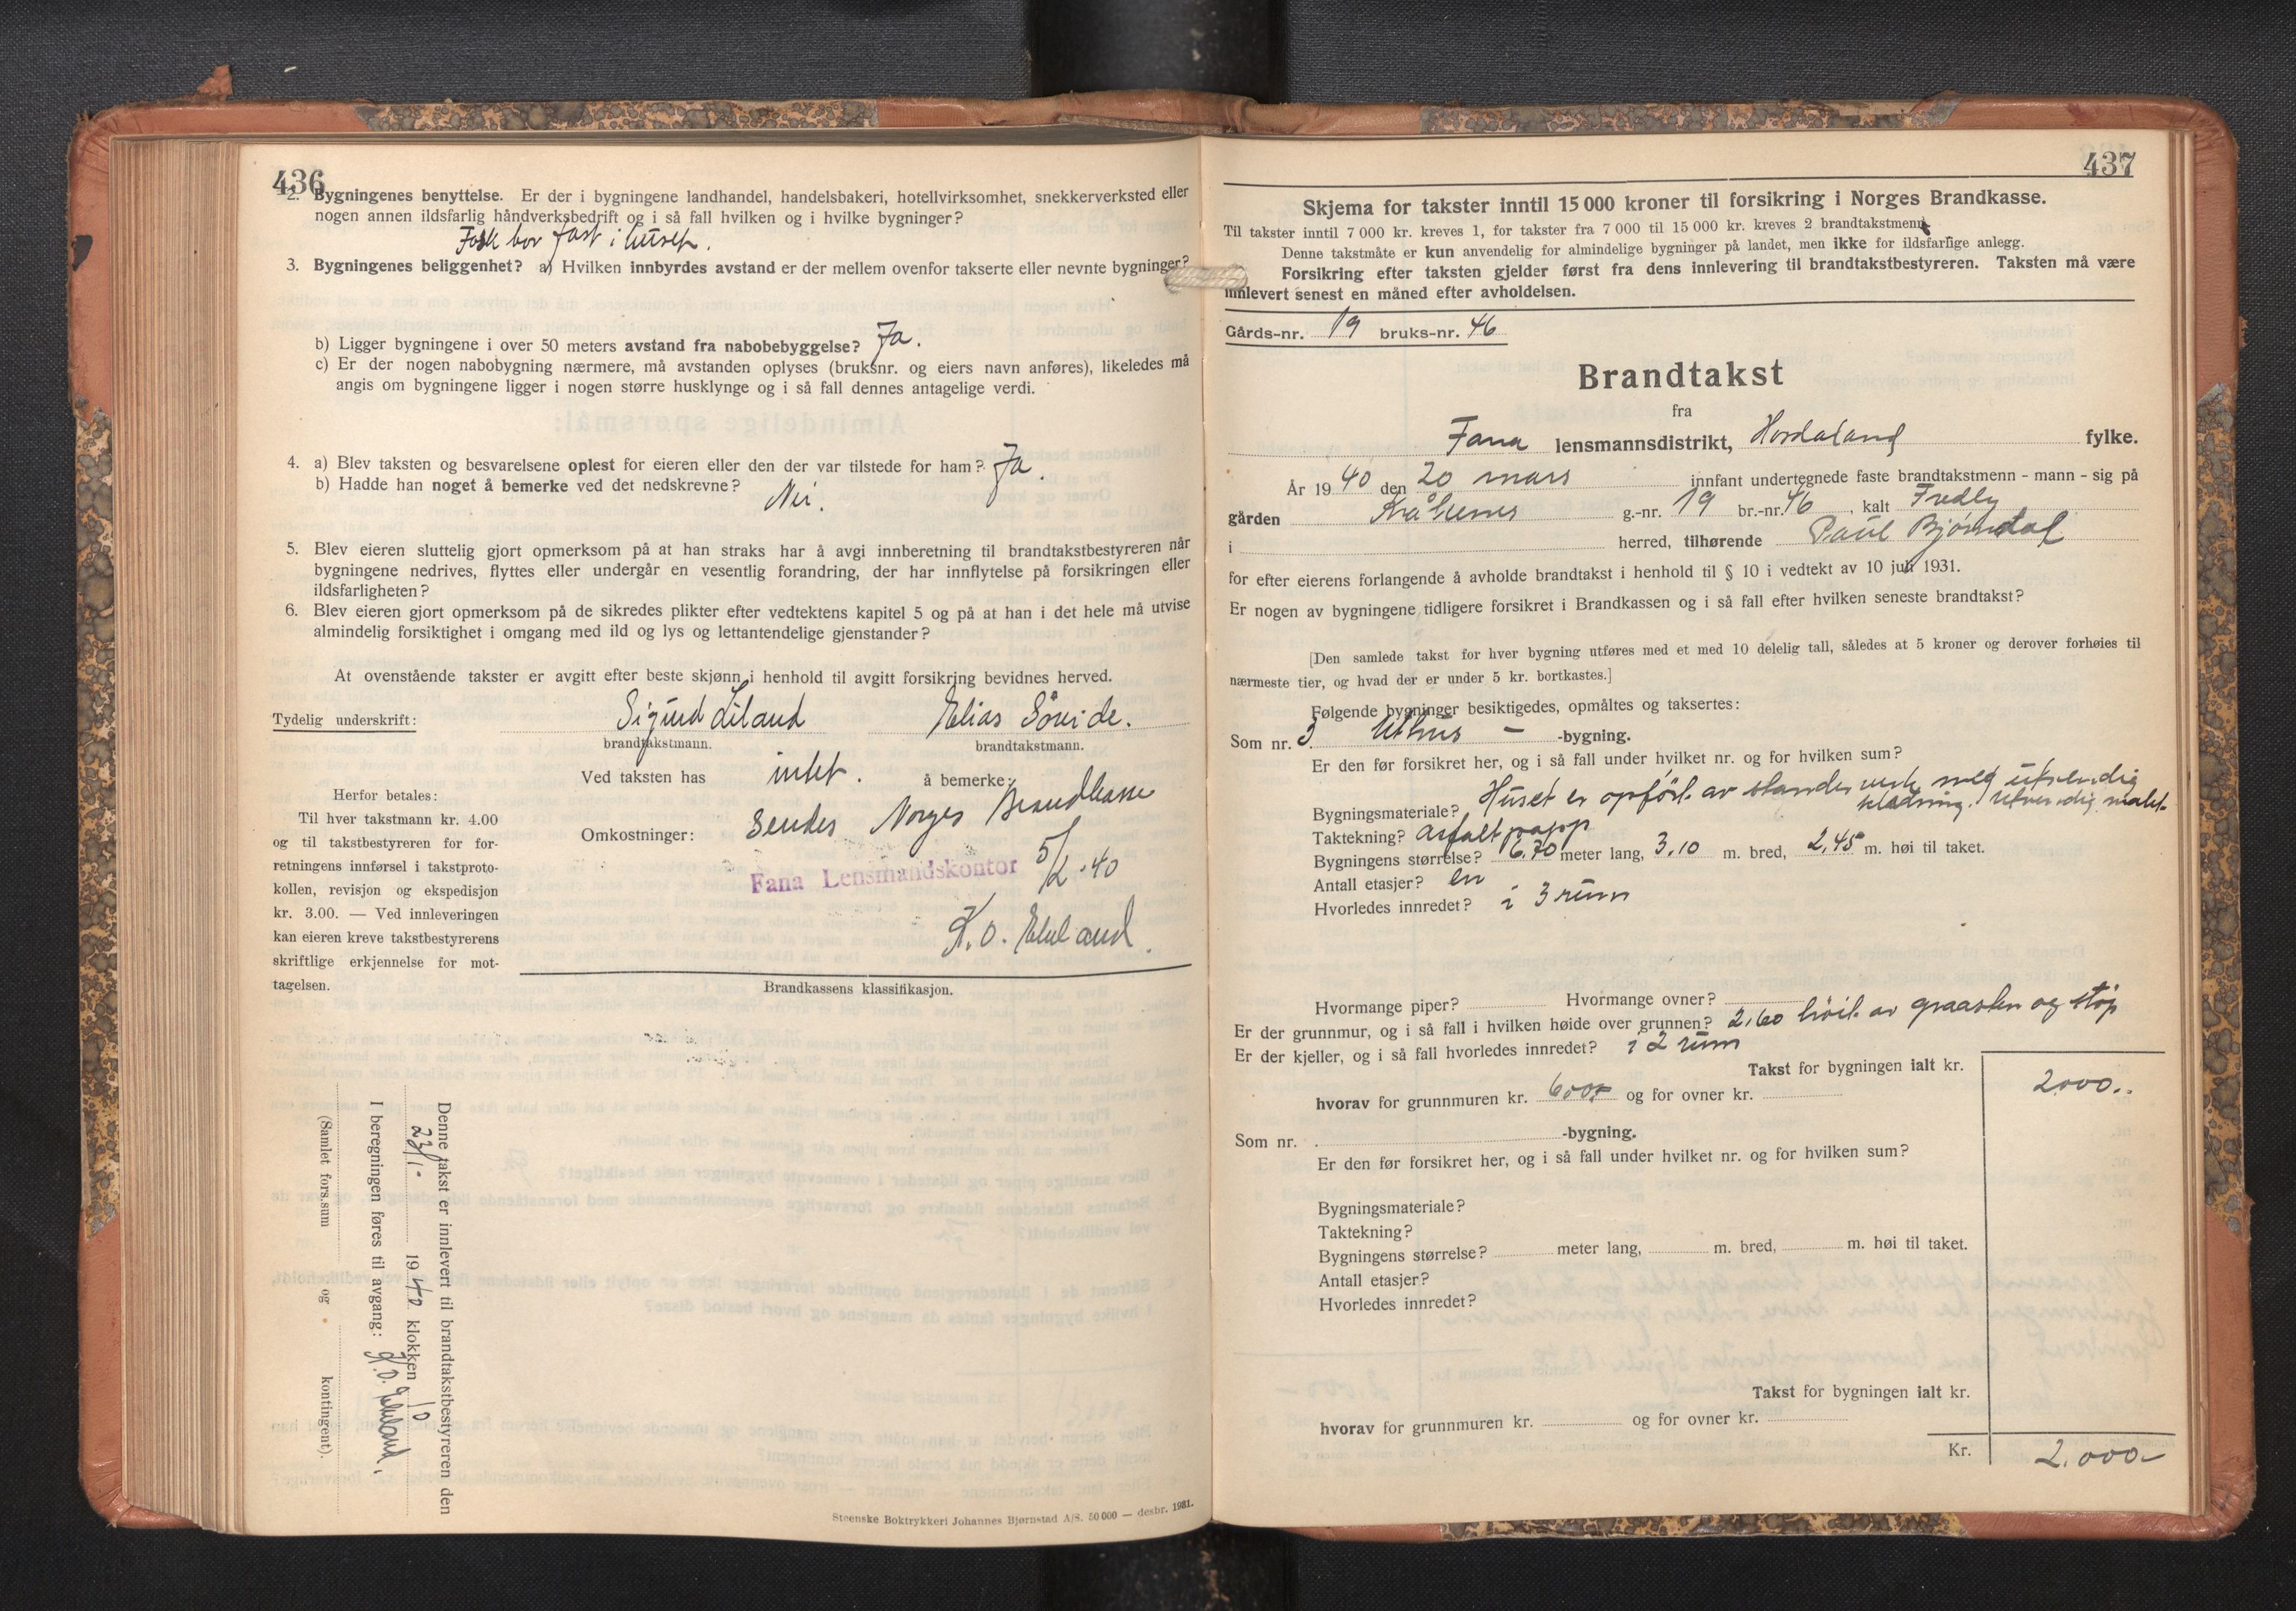 436
2. Bygningenes benyttelse. Er der i bygningene landhandel, handelsbakeri, hotellvirksomhet, snekkerverksted eller
nogen annen ildsfarlig håndverksbedrift og i så fall hvilken og i hvilke bygninger?
Folk bor fast i huset.
3. Bygningenes beliggenhet? a) Hvilken innbyrdes avstand er der mellem ovenfor takserte eller nevnte bygninger?
b) Ligger bygningene i over 50 meters avstand fra nabobebyggelse? Ja.
c) Er der nogen nabobygning nærmere, må avstanden oplyses (bruksnr. og eiers navn anføres), likeledes må
angis om bygningene ligger i nogen større husklynge og i så fall dennes antagelige verdi.
4. a) Blev taksten og besvarelsene oplest for eieren eller den der var tilstede for ham? Ja.
b) Hadde han noget å bemerke ved det nedskrevne? Nei.
5. Blev eieren sluttelig gjort opmerksom på at han straks har å avgi innberetning til brandtakstbestyreren når
bygningene nedrives, flyttes eller undergår en vesentlig forandring, der har innflytelse på forsikringen eller
ildsfarligheten?
6. Blev eieren gjort opmerksom på de sikredes plikter efter vedtektens kapitel 5 og på at han i det hele må utvise
almindelig forsiktighet i omgang med ild og lys og lettantendelige gjenstander?
At ovenstående takster er avgitt efter beste skjønn i henhold til avgitt forsikring bevidnes herved.
Tydelig underskrift: Sigurd Liland Elias Søvide.
brandtakstmann. brandtakstmann.
Ved taksten has intet. å bemerke:
Omkostninger: Sendes Norges Brandkasse
Fana Lensmandskontor 5/2-40
K. O. Ekeland.
Herfor betales:
Til hver takstmann kr. 4.00
og til takstbestyreren for for-
retningens innførsel i takstproto-
kollen, revisjon og ekspedisjon
kr. 3.00. — Ved innleveringen
kan eieren kreve takstbestyrerens
skriftlige erkjennelse for mot-
tagelsen.
Brandkassens klassifikasjon.
Denne takst er innlevert til brandtakstbestyreren den
23/1- 1940 klokken 10
I beregningen føres til avgang: K. O. Ekeland.
(Samlet fors.sum og kontingent).
Steenske Boktrykkeri Johannes Bjørnstad A/S. 50 000 — desbr. 1931.
437
Skjema for takster inntil 15 000 kroner til forsikring i Norges Brandkasse.
Til takster inntil 7 000 kr. kreves 1, for takster fra 7 000 til 15 000 kr. kreves 2 brandtakstmenn.
Denne takstmåte er kun anvendelig for almindelige bygninger på landet, men ikke for ildsfarlige anlegg.
Forsikring efter taksten gjelder først fra dens innlevering til brandtakstbestyreren. Taksten må være
innlevert senest en måned efter avholdelsen.
Gårds-nr. 19 bruks-nr. 46
Brandtakst
fra
Fana lensmannsdistrikt, Hordaland fylke.
År 1940 den 20 mars innfant undertegnede faste brandtakstmenn - mann - sig på
gården Kråkenes g.-nr. 19 br.-nr. 46, kalt Fredly
i herred, tilhørende Paul Bjørndal
for efter eierens forlangende å avholde brandtakst i henhold til § 10 i vedtekt av 10 juli 1931.
Er nogen av bygningene tidligere forsikret i Brandkassen og i så fall efter hvilken seneste brandtakst?
[Den samlede takst for hver bygning utføres med et med 10 delelig tall, således at 5 kroner og derover forhøies til
nærmeste tier, og hvad der er under 5 kr. bortkastes.]
Følgende bygninger besiktigedes, opmåltes og taksertes:
Som nr. 3. Uthus - -bygning.
Er den før forsikret her, og i så fall under hvilket nr. og for hvilken sum?
Bygningsmateriale? Huset er opført av standerverk med utvendig
kledning. Utvendig malt.
Taktekning? Asfaltpapp
Bygningens størrelse? 6.70 meter lang, 3.10 m. bred, 2.45 m. høi til taket.
Antall etasjer? en
Hvorledes innredet? i 3 rum
Hvormange piper? Hvormange ovner?
Er der grunnmur, og i så fall i hvilken høide over grunnen? 2.60 høit av graasten og støp
Er der kjeller, og i så fall hvorledes innredet? i 2 rum
Takst for bygningen ialt kr. 2000..
hvorav for grunnmuren kr. 600- og for ovner kr.
Som nr. -bygning.
Er den før forsikret her, og i så fall under hvilket nr. og for hvilken sum?
Bygningsmateriale?
Taktekning?
Bygningens størrelse? meter lang, m. bred, m. høi til taket.
Antall etasjer?
Hvorledes innredet?
Takst for bygningen ialt kr.
hvorav for grunnmuren kr. og for ovner kr.
Kr. 2.000-